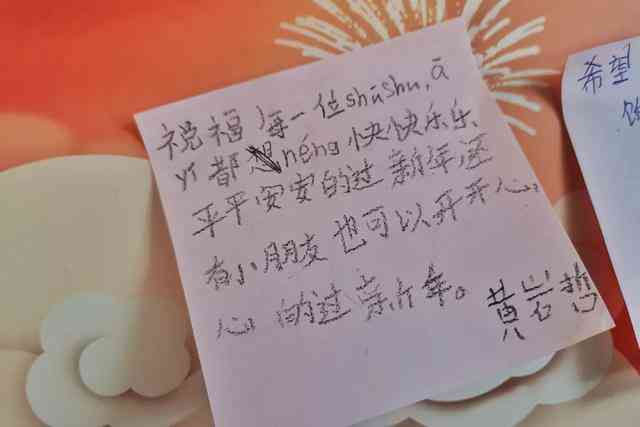 祝福每一位shūshu,ā
yí都néng快快乐乐
平平安安的过新年还
有小朋友也可以开开心
心的过新年。
黄岩
希望